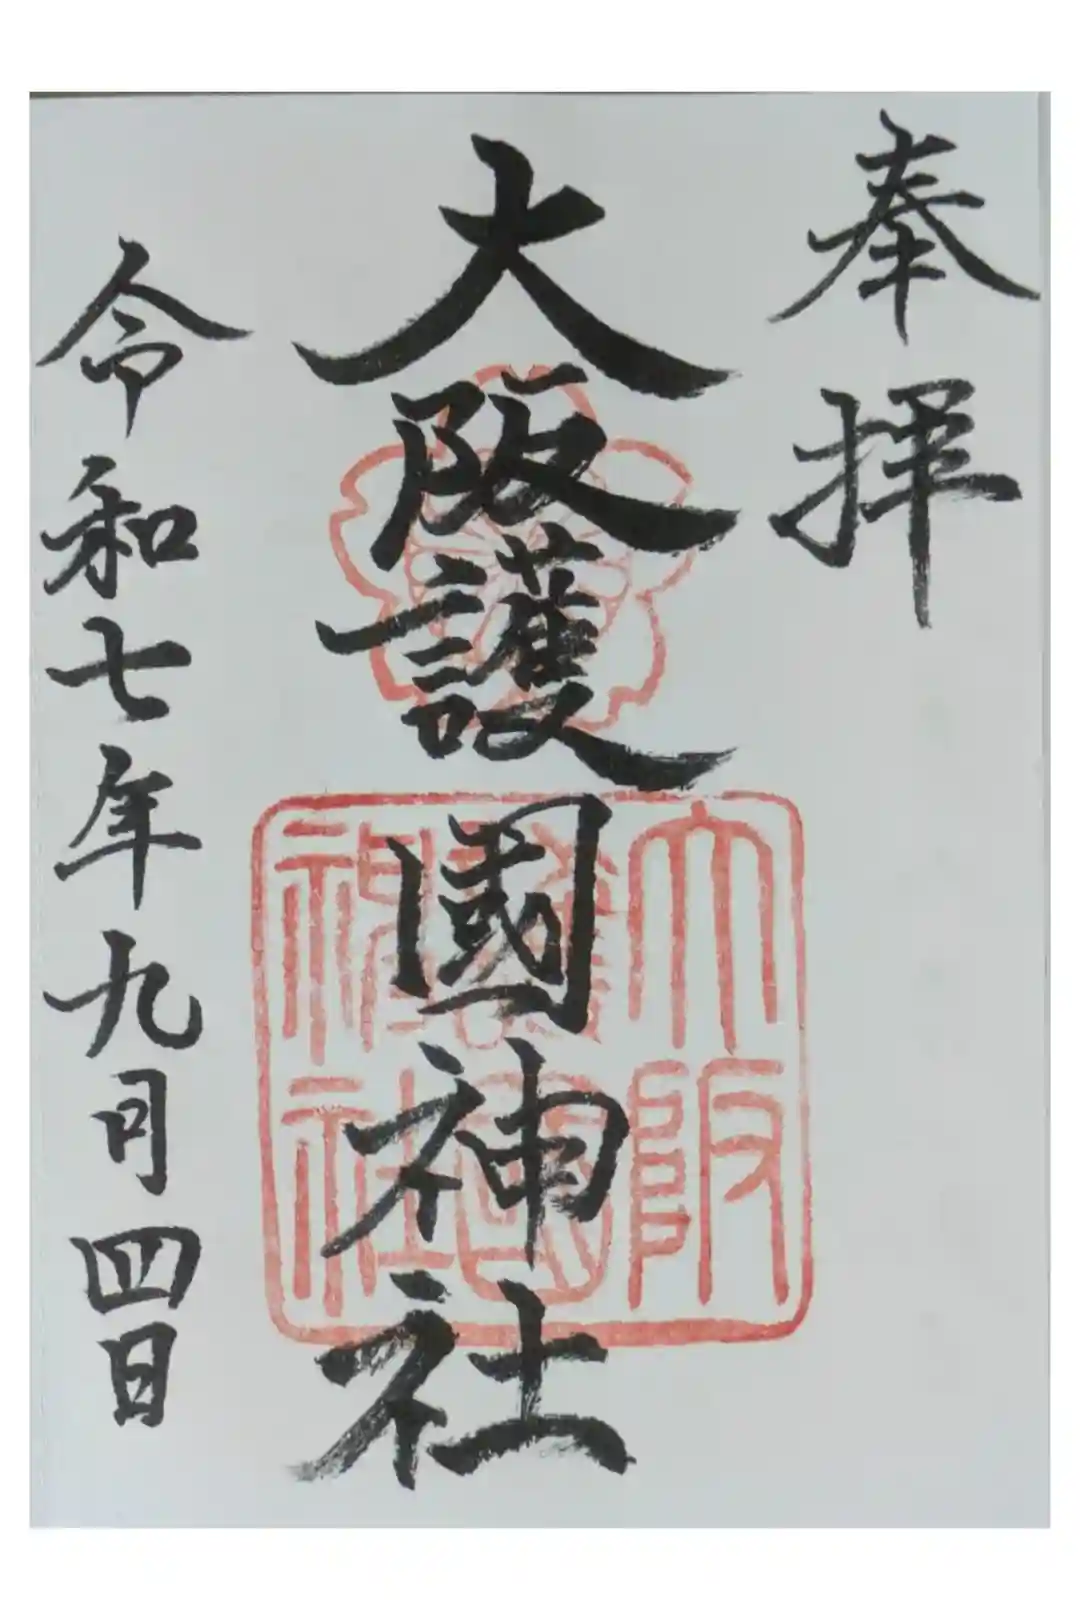 奉拝
大阪護國神社
大阪
護國
神社
令和七年九月四日